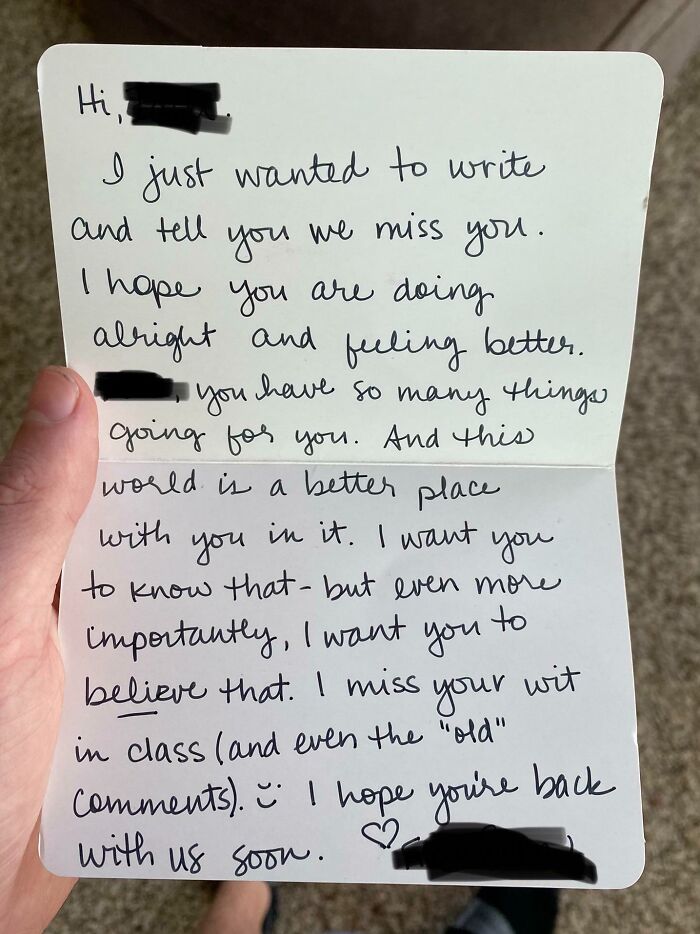 Hi, .
I just wanted to write
and tell you we miss you.
I hope you are doing
alright and feeling better.
, you have so many things
going for you. And this
world is a better place
with you in it. I want you
to know that - but even more
importantly, I want you to
believe that. I miss your wit
in class (and even the "old"
comments). :) I hope you're back
with us soon. ♡